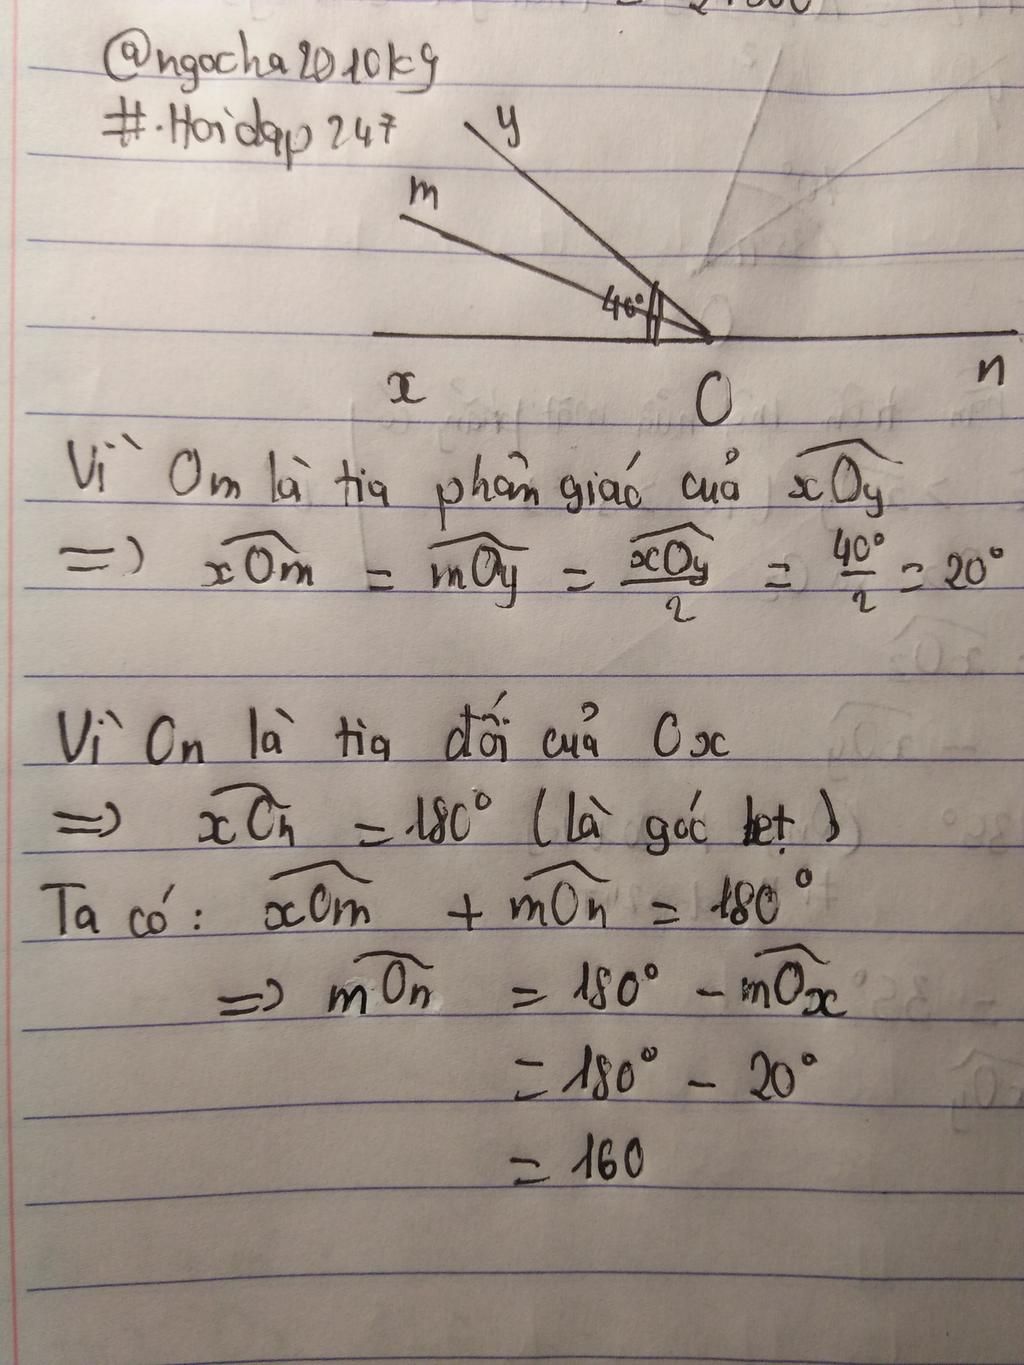 @ngocha2010kg
#.Hoidap247
y
m
40°
x
O
n
Vì Om là tia phân giác của xOy
=> xOm = mOy = xOy/2 = 40°/2 = 20°
Vì On là tia đối của Ox
=> xOn = 180° (là góc bẹt)
Ta có: xOm + mOn = 180°
=> mOn = 180° - mOx
= 180° - 20°
= 160